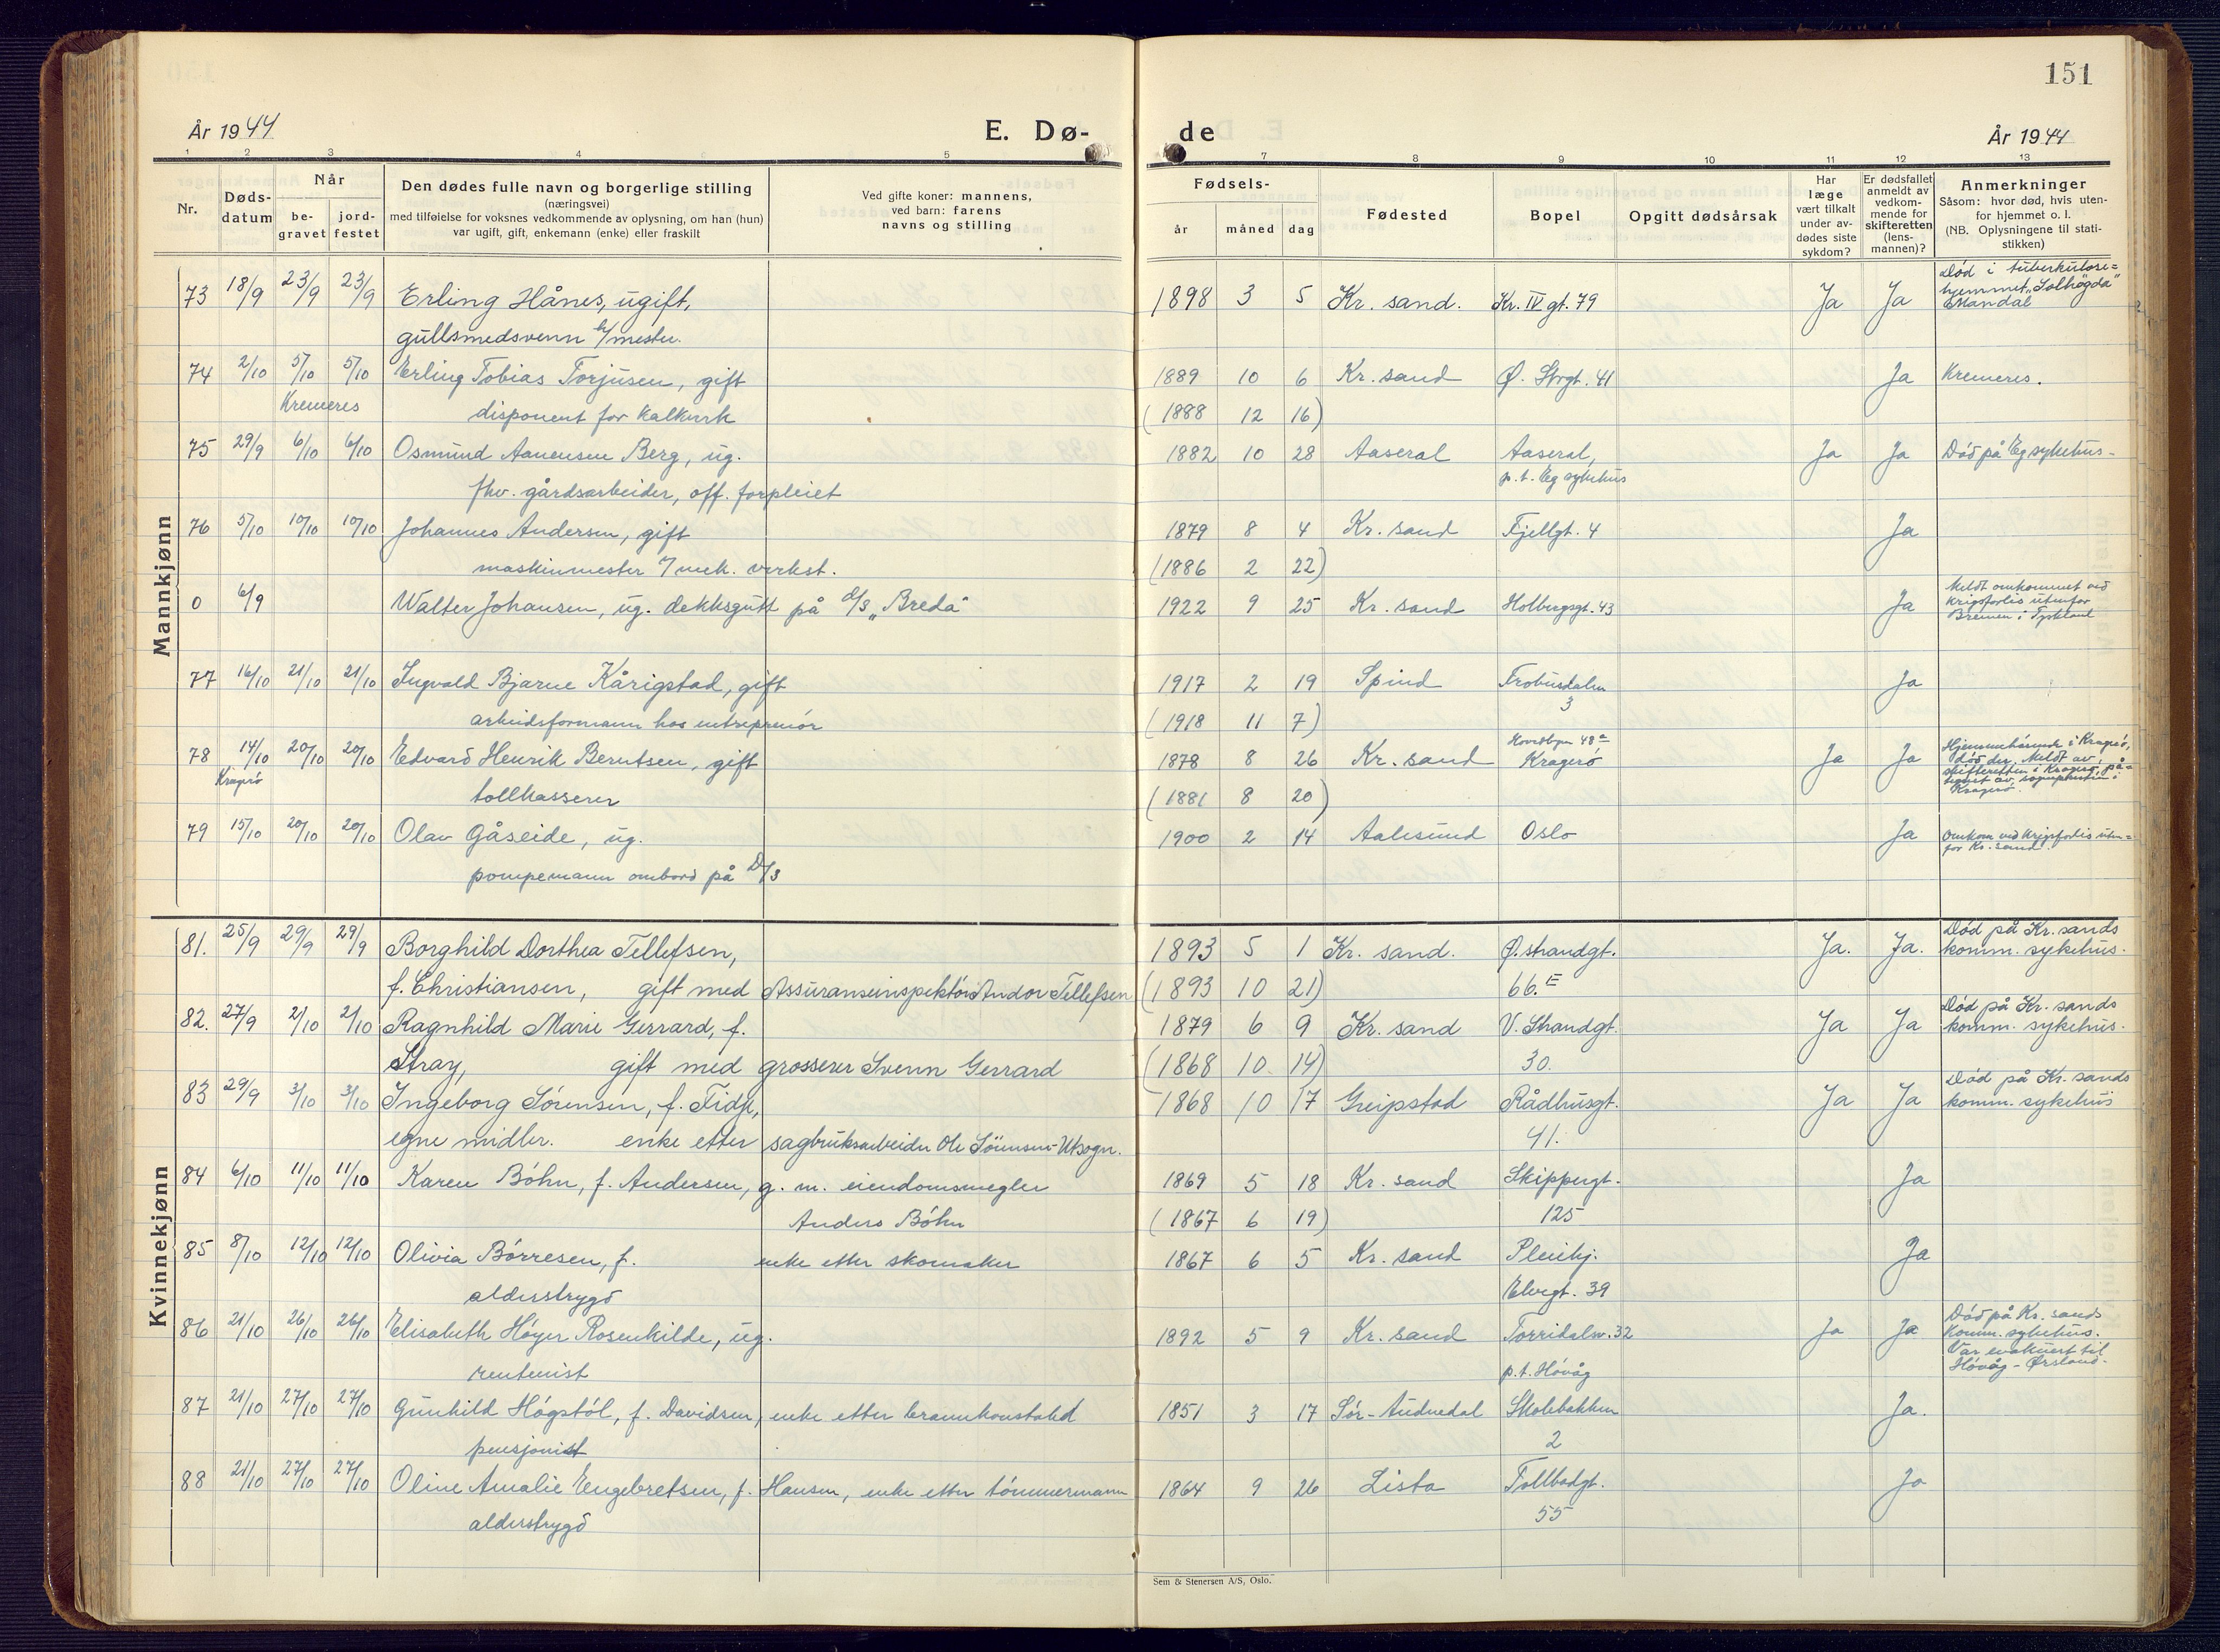 151
År 1944
E. Dø-
de
År 1944
1 2 3 4 5 7 8 9 10 11 12 13
Nr.
Døds-
datum
Når
be-
gravet
jord-
festet
Den dødes fulle navn og borgerlige stilling
(næringsvei)
med tilføielse for voksnes vedkommende av oplysning, om han (hun)
var ugift, gift, enkemann (enke) eller fraskilt
Ved gifte koner: mannens,
ved barn: farens
navns og stilling
Fødsels-
år måned dag
Fødested
Bopel
Opgitt dødsårsak
Har
læge
vært tilkalt
under av-
dødes siste
sykdom?
Er dødsfallet
anmeldt av
vedkom-
mende for
skifteretten
(lens-
mannen)?
Anmerkninger
Såsom: hvor død, hvis uten-
for hjemmet o. l.
(NB. Oplysningene til stati-
stikken)
Mannkjønn
73 18/9 23/9 23/9 Erling Hånes, ugift, 1898 3 5 Kr. sand. Kr. IV gt. 79 Ja Ja Död i tuberkulose=
hjemmet „Solhögda"
Mandal
gullsmedsvenn h/mester.
74 2/10 5/10 5/10 Erling Tobias Torjusen, gift 1889 10 6 Kr. sand Ø. Strgt. 41 Ja Kremeres.
Kremeres disponent for kalkverk (1888 12 16)
75 29/9 6/10 6/10 Osmund Aanensen Berg, ug. 1882 10 28 Aaseral Aaseral, Ja Ja Död på Eg sykehus-
fhv. gårdsarbeider, off. forpleiet p.t. Eg sykehus
76 5/10 10/10 10/10 Johannes Andersen, gift 1879 8 4 Kr. sand Fjellgt. 4 Ja
maskinmester v/mek. verkst. (1886 2 22)
0 6/9 Walter Johansen, ug. dekksgutt på D/S „Breda" 1922 9 25 Kr. sand Holbergsgt. 43 Ja Meldt omkommet ved
krigsforlis utenfor
Bremen i Tyskland
77 16/10 21/10 21/10 Ingvald Bjarne Kårigstad, gift 1917 2 19 Spind Frobusdalen Ja
3
arbeidsformann hos entreprenör (1918 11 7)
78 14/10 20/10 20/10 Edvard Henrik Berntsen, gift 1878 8 26 Kr. sand Kragerö Ja Ja Hjemmehörende i Kragerö,
död der. Meldt av
skifteretten i Kragerö, på=
tegnet av sogneprsten i
Kragerö.
Kragerö tollkasserer (1881 8 20)
79 15/10 20/10 20/10 Olav Gåseide, ug. 1900 2 14 Aalesund Oslo Ja Omkom ved krigsforlis uten=
for Kr. sand.
pompemann ombord på D/S
Kvinnekjønn
81. 25/9 29/9 29/9 Borghild Dorthea Tellefsen, 1893 5 1 Kr. sand. Ø. strandgt. Ja. Ja. Död på Kr. sands
komm. sykehus.
f. Christiansen, gift med Assuranseinspektör Andor Tellefsen (1893 10 21) 66. II
82. 27/9 2/10 2/10 Ragnhild Marie Gerrard, f. 1879 6 9 Kr. sand V. Strandgt. Ja Ja Död på Kr. sands
komm. sykehus.
Stray, gift med grosserer Svenn Gerrard (1868 10 14) 30.
83 29/9 3/10 3/10 Ingeborg Sörensen, f. Fidje, 1868 10 17 Greipstad Rådhusgt. Ja Ja Död på Kr. sands
komm. sykehus
egne midler. enke etter sagbruksarbeider Ole Sörensen-Utsogn. 41.
84 6/10 11/10 11/10 Karen Böhn, f. Andersen, g. m. eiendomsmegler 1869 5 18 Kr. sand Skippergt. Ja
Anders Böhn (1867 6 19) 125
85 8/10 12/10 12/10 Olivia Börresen, f. enke etter skomaker 1867 6 5 Kr. sand Pleiehj. Ja
alderstrygd Elvegt. 39
86 21/10 26/10 26/10 Elisabeth Höyer Rosenkilde, ug. 1892 5 9 Kr. sand Torridalsv. 32 Ja Ja Död på Kr. sands
Komm. sykehus.
Var evakuert til
Hövåg - Ørsland.
rentenist p.t. Hövåg
87 21/10 27/10 27/10 Gunhild Högstöl, f. Davidsen, enke etter brannkonstabel 1851 3 17 Sör-Audnedal Skolebakken Ja.
pensjonist 2
88 21/10 27/10 27/10 Oline Amalie Engebretsen, f. Hansen, enke etter tömmermann 1864 9 26 Lista Tollbodgt. Ja
alderstrygd 55
Sem & Stenersen A/S, Oslo.